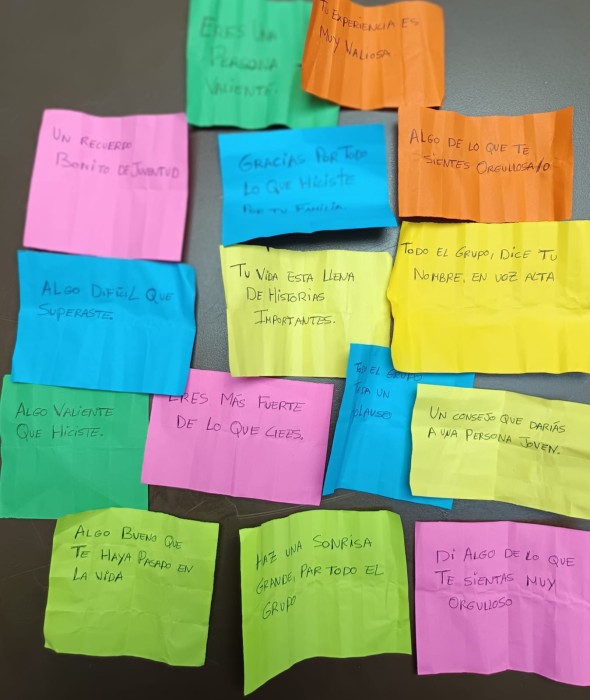 ERES UNA
PERSONA
VALIENTE.
TU EXPERIENCIA ES
MUY VALIOSA
UN RECUERDO
BONITO DE JUVENTUD
GRACIAS POR TODO
LO QUE HICISTE
POR TU FAMILIA
ALGO DE LO QUE TE
SIENTES ORGULLOSA/O
ALGO DIFÍCIL QUE
SUPERASTE.
TU VIDA ESTA LLENA
DE HISTORIAS
IMPORTANTES.
TODO EL GRUPO, DICE TU
NOMBRE, EN VOZ ALTA
ALGO VALIENTE
QUE HICISTE.
ERES MÁS FUERTE
DE LO QUE CREES.
EL
UN
UN CONSEJO QUE DARIÁS
A UNA PERSONA JOVEN.
ALGO BUENO QUE
TE HAYA PASADO EN
LA VIDA
HAZ UNA SONRISA
GRANDE, PAR TODO EL
GRUPO
DI ALGO DE LO QUE
TE SIENTAS MUY
ORGULLOSO